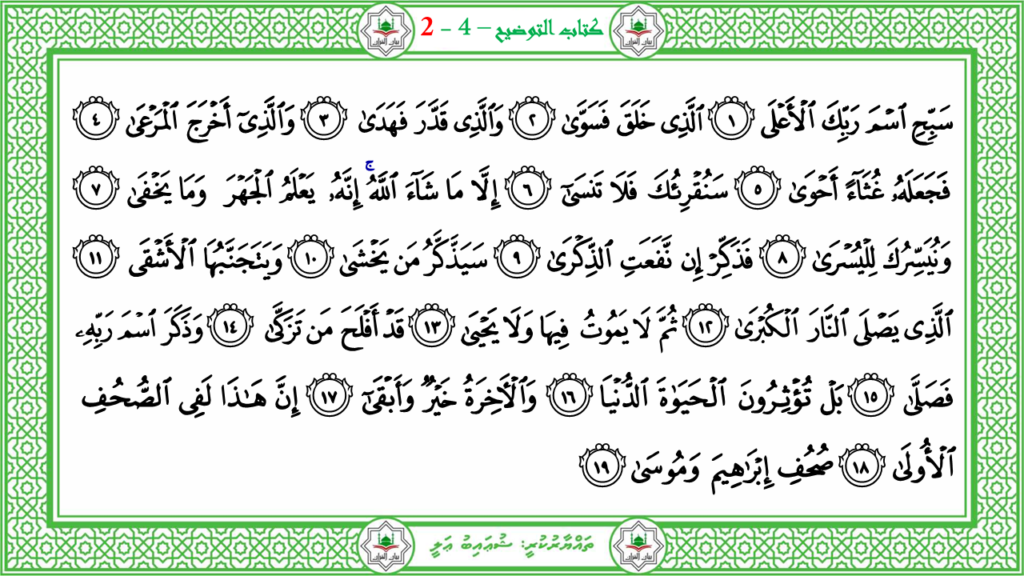 كتاب التوضيح – 4 - 2
سَبِّحِ ٱسْمَ رَبِّكَ ٱلْأَعْلَى ١ ٱلَّذِى خَلَقَ فَسَوَّىٰ ٢ وَٱلَّذِى قَدَّرَ فَهَدَىٰ ٣ وَٱلَّذِىٓ أَخْرَجَ ٱلْمَرْعَىٰ ٤
فَجَعَلَهُۥ غُثَآءً أَحْوَىٰ ٥ سَنُقْرِئُكَ فَلَا تَنسَىٰٓ ٦ إِلَّا مَا شَآءَ ٱللَّهُ ۚ إِنَّهُۥ يَعْلَمُ ٱلْجَهْرَ وَمَا يَخْفَىٰ ٧
وَنُيَسِّرُكَ لِلْيُسْرَىٰ ٨ فَذَكِّرْ إِن نَّفَعَتِ ٱلذِّكْرَىٰ ٩ سَيَذَّكَّرُ مَن يَخْشَىٰ ١٠ وَيَتَجَنَّبُهَا ٱلْأَشْقَى ١١
ٱلَّذِى يَصْلَى ٱلنَّارَ ٱلْكُبْرَىٰ ١٢ ثُمَّ لَا يَمُوتُ فِيهَا وَلَا يَحْيَىٰ ١٣ قَدْ أَفْلَحَ مَن تَزَكَّىٰ ١٤ وَذَكَرَ ٱسْمَ رَبِّهِۦ
فَصَلَّىٰ ١٥ بَلْ تُؤْثِرُونَ ٱلْحَيَوٰةَ ٱلدُّنْيَا ١٦ وَٱلْـَٔاخِرَةُ خَيْرٌ وَأَبْقَىٰٓ ١٧ إِنَّ هَـٰذَا لَفِى ٱلصُّحُفِ
ٱلْأُولَىٰ ١٨ صُحُفِ إِبْرَٰهِيمَ وَمُوسَىٰ ١٩
ތައްޔާރުކުރީ: ޝުޢައިބު ޢަލީ